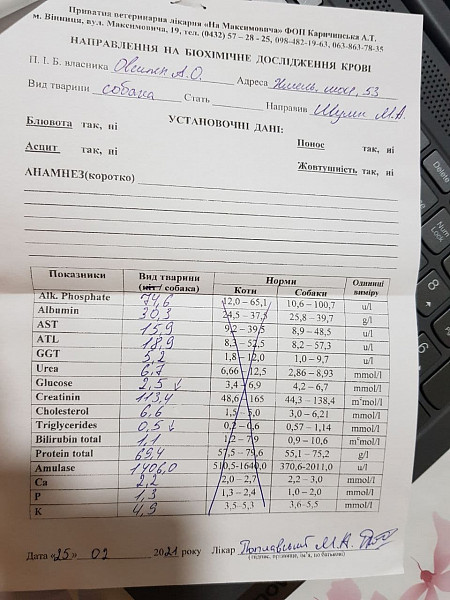 Приватна ветеринарна лікарня «На Максимовича» ФОП Каричинська А.Т.
м. Вінниця, вул. Максимовича, 19, тел. (0432) 57 – 28 - 25, 098-482-19-63, 063-863-78-35
НАПРАВЛЕННЯ НА БІОХІМІЧНЕ ДОСЛІДЖЕННЯ КРОВІ
П. І. Б. власника А.О. Адреса 53
Вид тварини собака Стать Направив М.А.
УСТАНОВОЧНІ ДАНІ:
Блювота так, ні Понос так, ні
Асцит так, ні Жовтушність так, ні
АНАМНЕЗ(коротко)
Показники Вид тварини (кіт / собака) Норми Одиниці виміру
Коти Собаки
Alk. Phosphate 74,6 12,0 – 65,1 10,6 – 100,7 u/l
Albumin 30,3 24,5 – 37,5 25,8 – 39,7 g/l
AST 15,9 9,2 – 39,5 8,9 – 48,5 u/l
ATL 18,9 8,3 – 52,5 8,2 – 57,3 u/l
GGT 5,2 1,8 – 12,0 1,0 – 9,7 u/l
Urea 6,7 6,66 – 12,5 2,86 – 8,93 mmol/l
Glucose 2,5 ↓ 3,4 – 6,9 4,2 – 6,7 mmol/l
Creatinin 113,4 48,6 – 165 44,3 – 138,4 m²mol/l
Cholesterol 6,6 1,5 – 5,0 3,0 – 6,21 mmol/l
Triglycerides 0,5 ↓ 0,2 – 0,6 0,57 – 1,14 mmol/l
Bilirubin total 1,1 1,2 – 7,9 0,9 – 10,6 m²mol/l
Protein total 69,4 57,5 – 79,6 55,1 – 75,2 g/l
Amulase 1406,0 510,5-1640,0 370,6-2011,0 u/l
Ca 2,2 2,0 – 2,7 2,2 – 3,0 mmol/l
P 1,3 1,3 – 2,4 1,0 – 2,0 mmol/l
K 4,9 3,5 – 5,3 3,6 – 5,5 mmol/l
Дата «25» 02 2021 року Лікар Поплавський М.А.
Delete
Num Lock
8
6